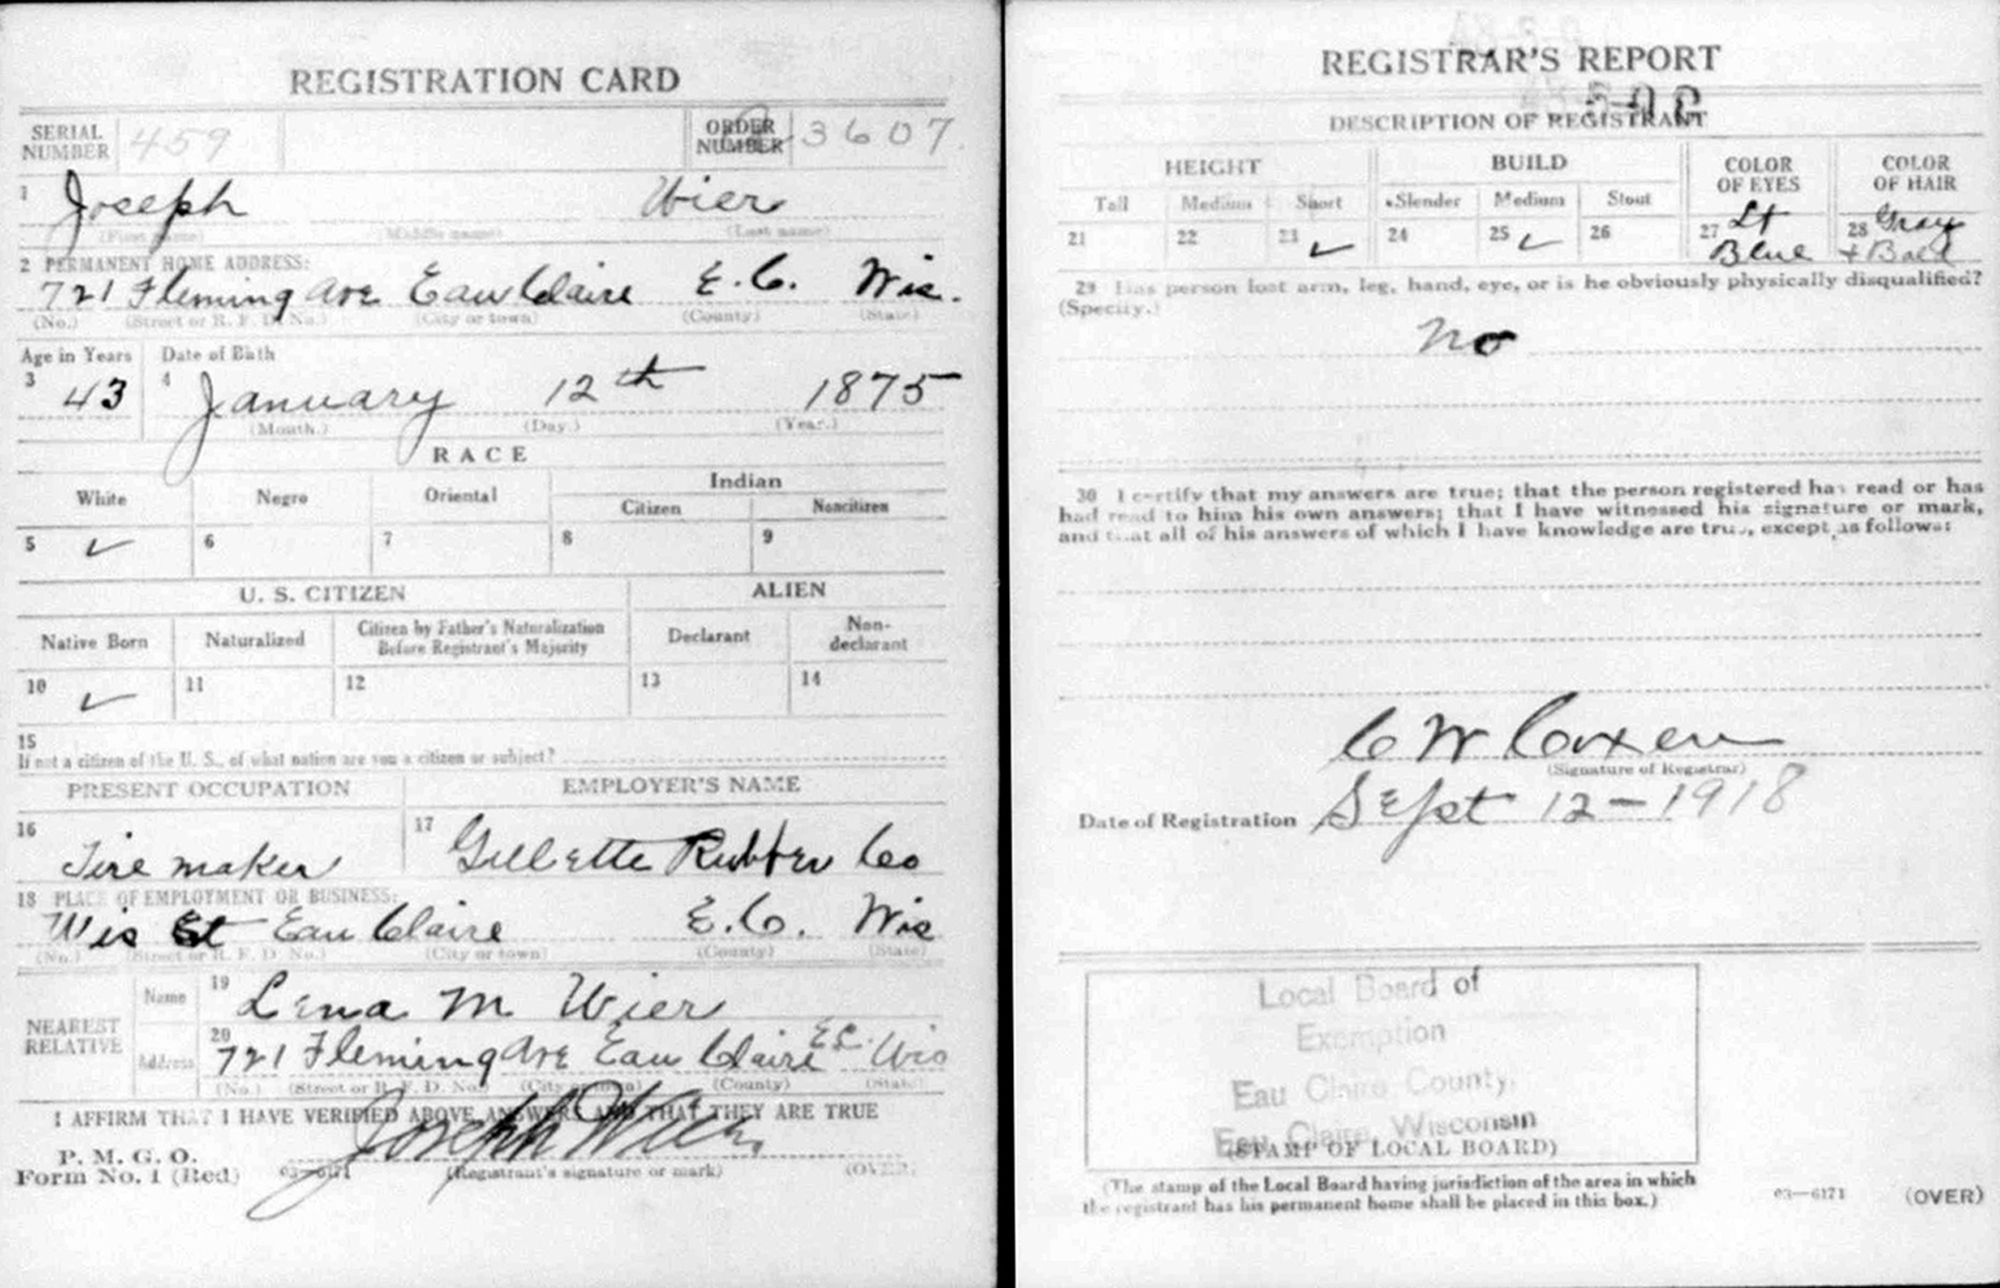 REGISTRATION CARD
SERIAL NUMBER 459
ORDER NUMBER 3607
1 Joseph Wier
(First name) (Middle name) (Last name)
2 PERMANENT HOME ADDRESS:
721 Fleming Ave Eau Claire E.C. Wis.
(No.) (Street or R. F. D. No.) (City or town) (County) (State)
Age in Years Date of Birth
3 43 4 January 12th 1875
(Month.) (Day.) (Year.)
RACE
White Negro Oriental Indian
Citizen Noncitizen
5 ✓ 6 7 8 9
U. S. CITIZEN ALIEN
Native Born Naturalized Citizen by Father's Naturalization Before Registrant's Majority Declarant Non-declarant
10 ✓ 11 12 13 14
15
If not a citizen of the U. S., of what nation are you a citizen or subject?
PRESENT OCCUPATION EMPLOYER'S NAME
16 Tire maker 17 Gillette Rubber Co
18 PLACE OF EMPLOYMENT OR BUSINESS:
Wis St Eau Claire E.C. Wis
(No.) (Street or R. F. D. No.) (City or town) (County) (State)
NEAREST RELATIVE
Name 19 Lena M Wier
Address 20 721 Fleming Ave Eau Claire E.C. Wis
(No.) (Street or R. F. D. No.) (City or town) (County) (State)
I AFFIRM THAT I HAVE VERIFIED ABOVE ANSWERS AND THAT THEY ARE TRUE
P. M. G. O.
Form No. 1 (Red) 03—6171 Joseph Wier
(Registrant's signature or mark) (OVER)
REGISTRAR'S REPORT
DESCRIPTION OF REGISTRANT
HEIGHT BUILD COLOR OF EYES COLOR OF HAIR
Tall Medium Short Slender Medium Stout
21 22 23 ✓ 24 25 ✓ 26 27 Lt Blue 28 Gray + Bald
29 Has person lost arm, leg, hand, eye, or is he obviously physically disqualified?
(Specify.)
No
30 I certify that my answers are true; that the person registered has read or has
had read to him his own answers; that I have witnessed his signature or mark,
and that all of his answers of which I have knowledge are true, except as follows:
C W Coxen
(Signature of Registrar)
Date of Registration Sept 12-1918
Local Board of
Exemption
Eau Claire County,
Eau Claire, Wisconsin
(STAMP OF LOCAL BOARD)
(The stamp of the Local Board having jurisdiction of the area in which
the registrant has his permanent home shall be placed in this box.)
03—6171 (OVER)